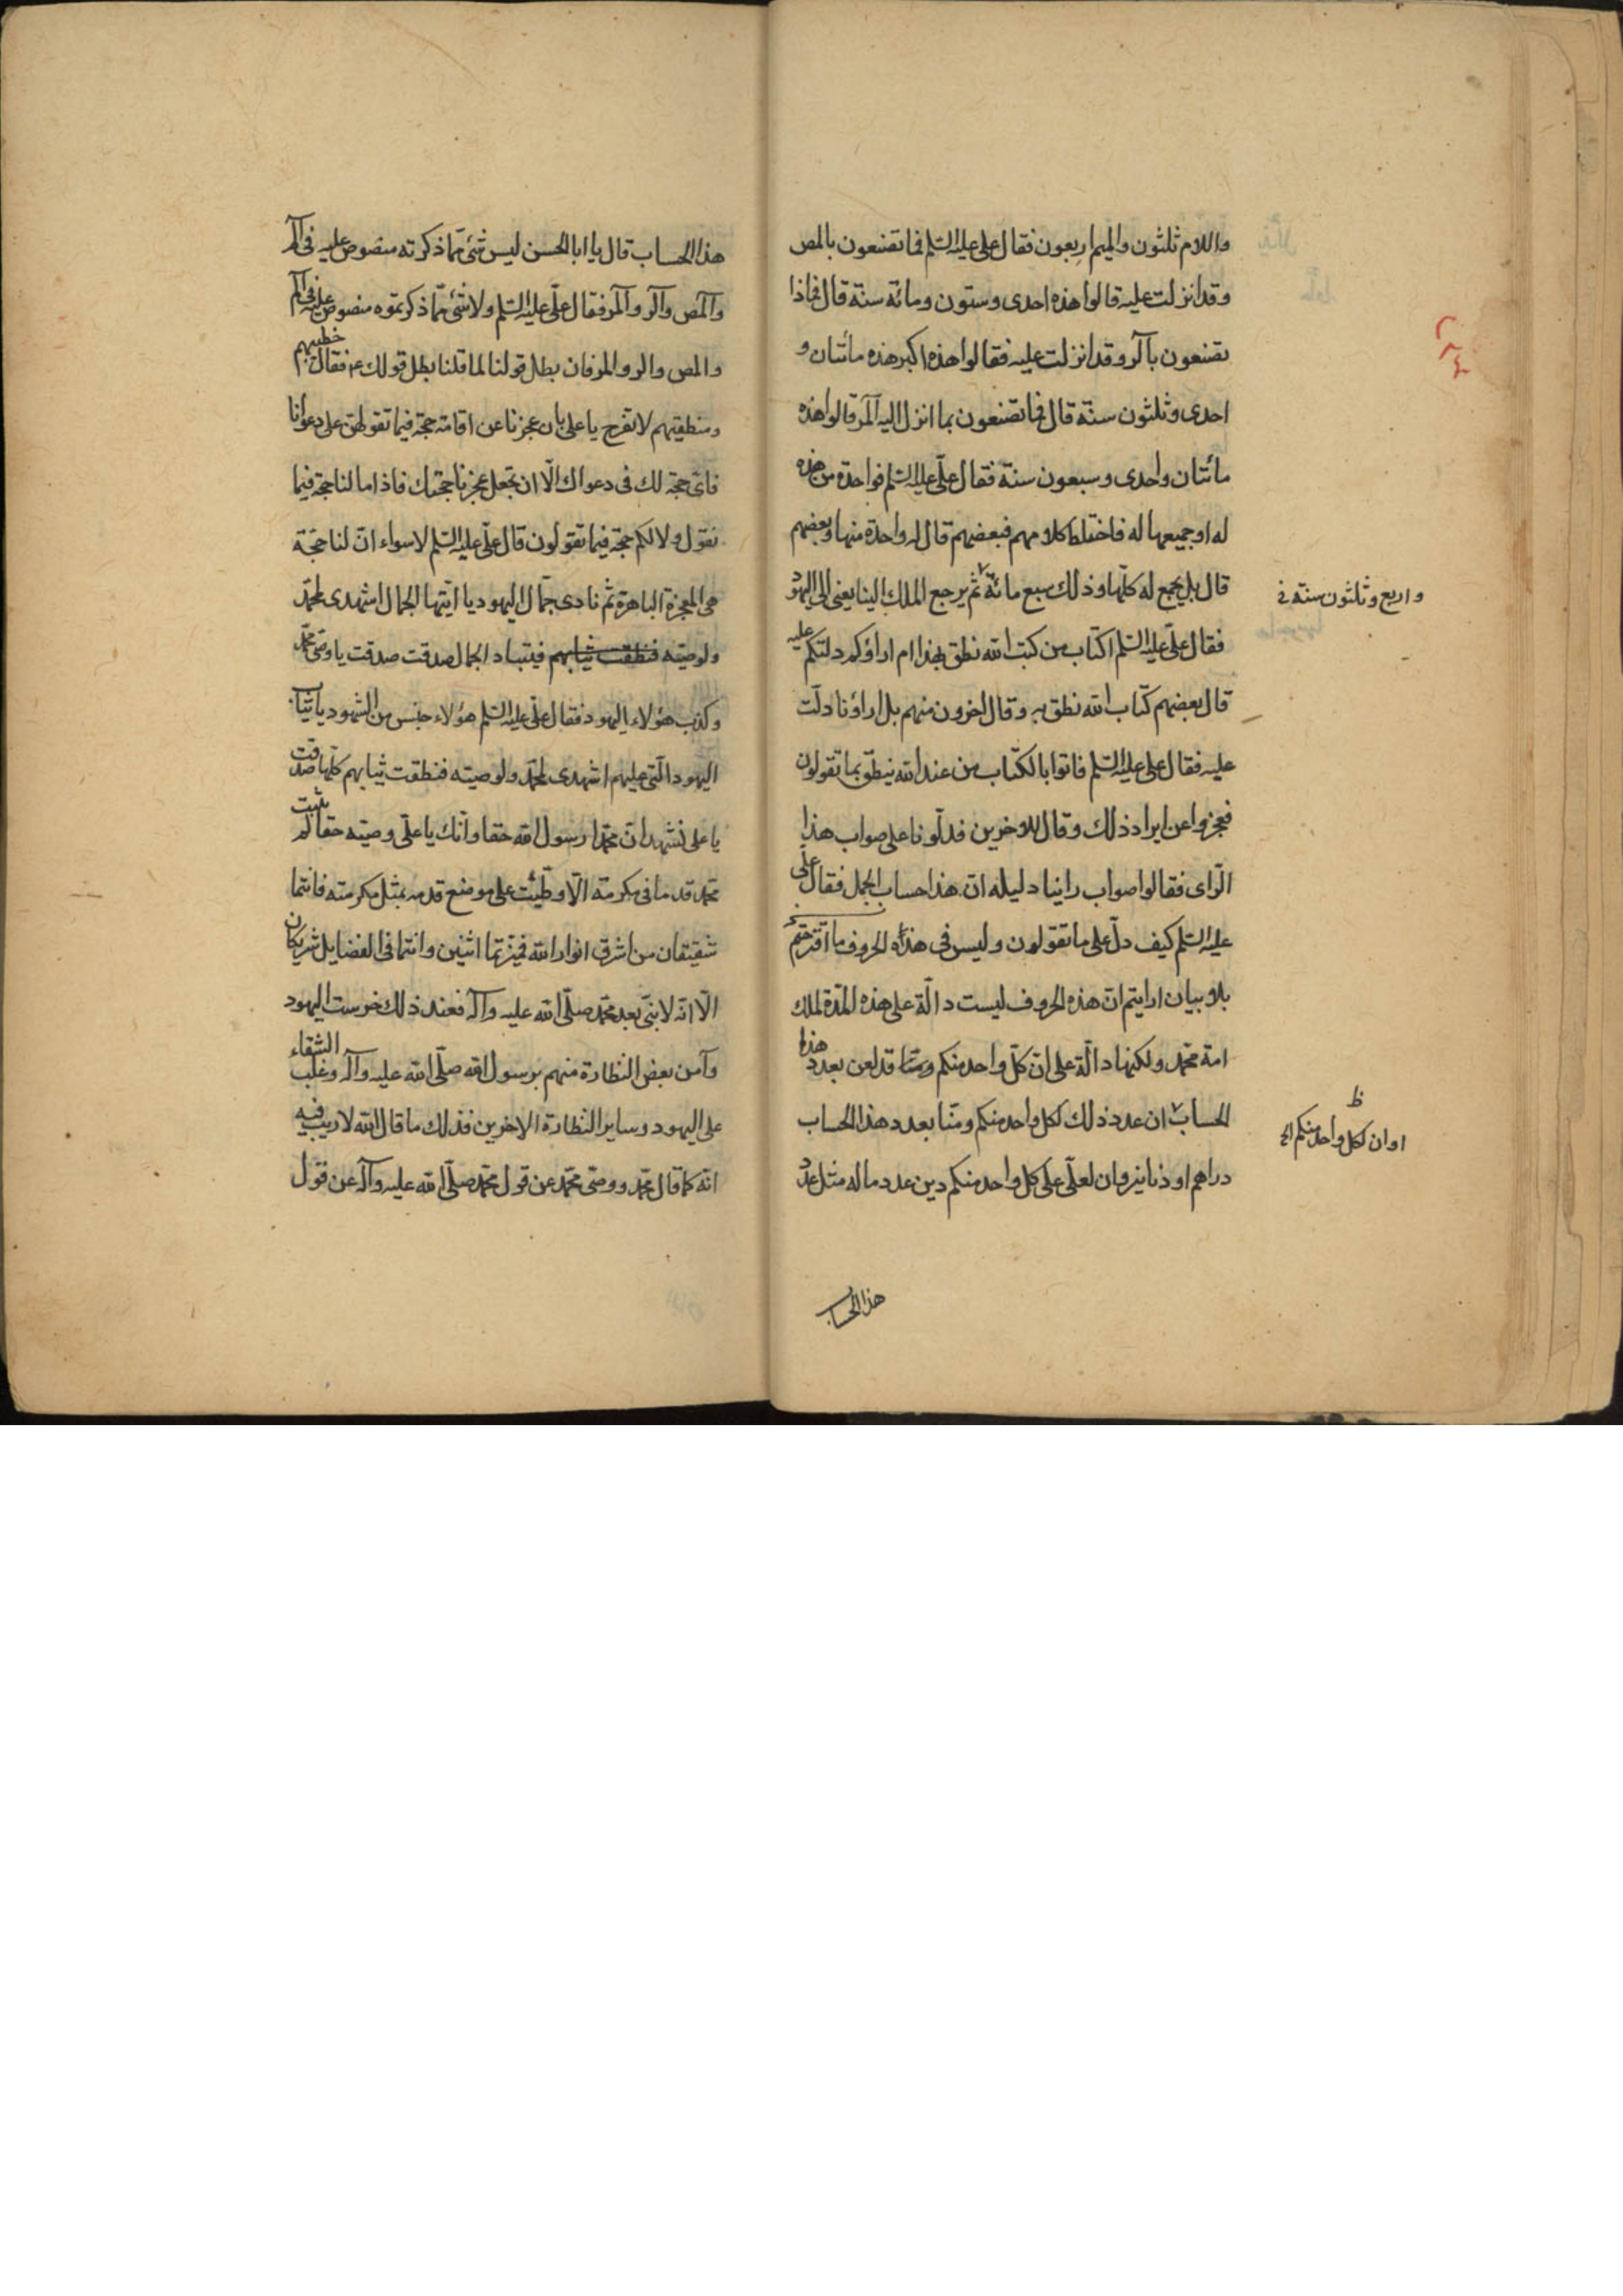 واللام ثلثون والميم اربعون فقال على عليه السلم فما تصنعون بالمص
وقد انزلت عليه قالوا هذه احدى وستون ومائة سنة قال فماذا
تصنعون بآلر وقد انزلت عليه فقالوا هذه اكبر هذه مأتان و
احدى وثلثون سنة قال فما تصنعون بما انزل اليه آلمر قالوا هذه
مأتان واحدى وسبعون سنة فقال علىّ عليه السلم فواحدة من هذه
له او جميعها له فاختلط كلامهم فبعضهم قال له واحدة منها وبعضهم
قال بل يجمع له كلّها وذلك سبع مائة ثم يرجع الملك الينا يعنى الى اليهود
واربع وثلثون سنة
فقال علىّ عليه السلم اكتاب من كتب الله نطق بهذا ام اراؤكم دلتكم عليه
قال بعضهم كتاب الله نطق به وقال اخرون منهم بل اراؤنا دلّت
عليه فقال على عليه السلم فاتوا بالكتاب من عند الله ينطق بما تقولون
فعجزوا عن ايراد ذلك وقال للاخرين فدلّونا على صواب هذا
الراى فقالوا صواب راينا دليله انّ هذا حساب الجمل فقال على
عليه السلم كيف دلّ على ما تقولون وليس فى هذه الحروف ما اقترحتم
بلا بيان ارايتم انّ هذه الحروف ليست دالّة على هذه المدّة لملك
امة محمّد ولكنها دالّة على انّ كلّ واحد منكم ومنّا قد لعن بعدد هذا
الحساب ان عدد ذلك لكل واحد منكم ومنّا بعدد هذا الحساب
او ان لكل واحد منكم الخ
ظ
دراهم او دنانير وان لعلّى على كل واحد منكم دين عدد ماله مثل عدد
هذا الحساب
هذا الحساب قال يا ابا الحسن ليس شئ ممّا ذكرته منصوص عليه فى آلم
وآلمص وآلر وآلمر فقال علىّ عليه السلم ولا شئ ممّا ذكرتموه منصوص عليه فى آلم
والمص والر والمر فان بطل قولنا لما قلنا بطل قولك فقال خطيبهم
ومنطيقهم لا تفرح يا على بان عجزنا عن اقامة حجة فيما تقولهن على دعوانا
فاىّ حجة لك فى دعواك الّا ان تجعل عجزنا حجتك فاذا ما لنا حجة فيما
نقول ولا لكم حجة فيما تقولون قال علىّ عليه السلم لاسواء انّ لنا حجّة
هى المعجزة الباهرة ثم نادى جمال اليهود يا ايتها الجمال اشهدى لمحمّد
ولوصيّه فنطقت ثيابهم فتبادر الجمال صدقت صدقت يا وصىّ محمّد
وكذب هؤلاء اليهود فقال علىّ عليه السلم هؤلاء جنس من الشهود يا ثياب
اليهود الّتى عليهم اشهدى لمحمّد ولوصيّه فنطقت ثيابهم كلّها صدقت
يا على نشهد انّ محمّدا رسول الله حقا وانّك يا علىّ وصيّه حقا لم يثبت
محمّد قدما فى مكرمة الّا وطئت على موضع قدمه بمثل مكرمته فانتما
شقيقان من اشرق انوار الله فميّزتما اثنين وانتما فى الفضايل شريكان
الّا انّه لا نبىّ بعد محمّد صلّى الله عليه وآله فعند ذلك خرست اليهود
وآمن بعض النظارة منهم برسول الله صلّى الله عليه وآله وغلب الشقاء
على اليهود وساير النظارة الاخرين فذلك ما قال الله لا ريب فيه
انّه كما قال محمّد ووصىّ محمّد عن قول محمّد صلّى الله عليه وآله عن قول